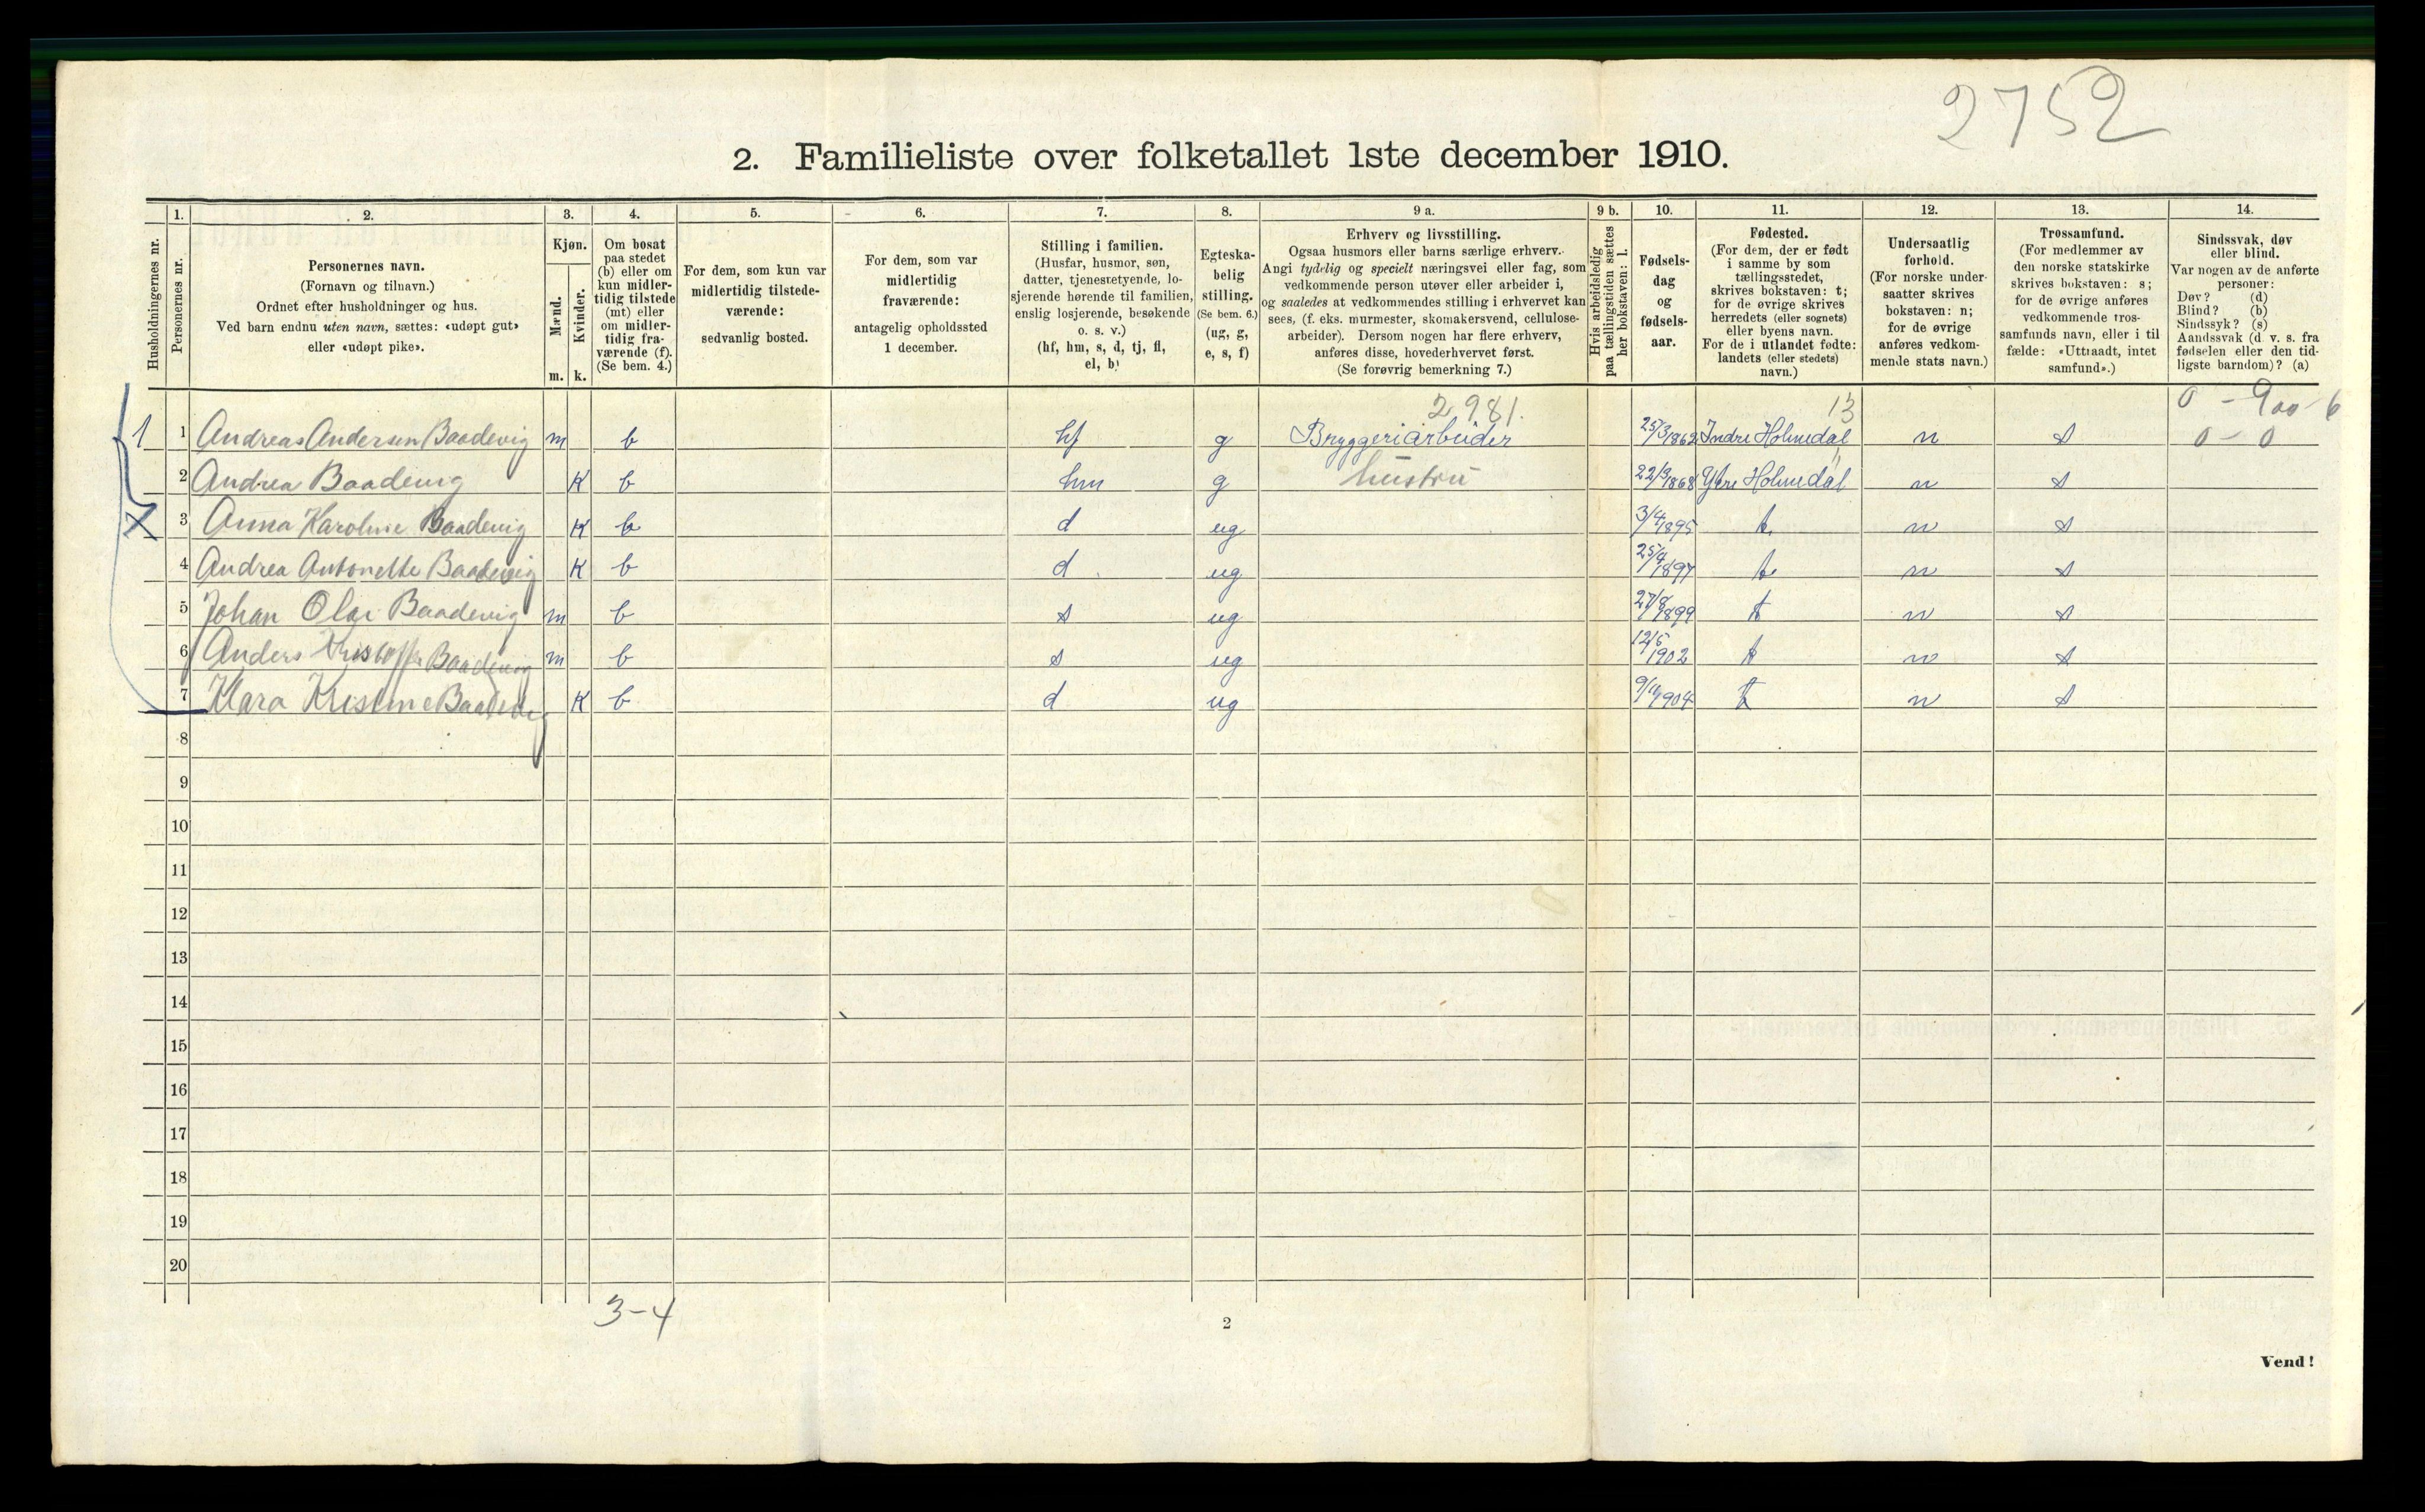 2752
2. Familieliste over folketallet 1ste december 1910.
Husholdningernes nr.
1.
Personernes nr.
2.
Personernes navn.
(Fornavn og tilnavn.)
Ordnet efter husholdninger og hus.
Ved barn endnu uten navn, sættes: «udøpt gut»
eller «udøpt pike».
3.
Kjøn.
Mænd.
Kvinder.
m. k.
4.
Om bosat
paa stedet
(b) eller om
kun midler-
tidig tilstede
(mt) eller
om midler-
tidig fra-
værende (f).
(Se bem. 4.)
5.
For dem, som kun var
midlertidig tilstede-
værende:
sedvanlig bosted.
6.
For dem, som var
midlertidig
fraværende:
antagelig opholdssted
1 december.
7.
Stilling i familien.
(Husfar, husmor, søn,
datter, tjenestetyende, lo-
sjerende hørende til familien,
enslig losjerende, besøkende
o. s. v.)
(hf, hm, s, d, tj, fl,
el, b)
8.
Egteska-
belig
stilling.
(Se bem. 6.)
(ug, g,
e, s, f)
9 a.
Erhverv og livsstilling.
Ogsaa husmors eller barns særlige erhverv.
Angi tydelig og specielt næringsvei eller fag, som
vedkommende person utøver eller arbeider i,
og saaledes at vedkommendes stilling i erhvervet kan
sees, (f. eks. murmester, skomakersvend, cellulose-
arbeider). Dersom nogen har flere erhverv,
anføres disse, hovederhvervet først.
(Se forøvrig bemerkning 7.)
9 b.
Hvis arbeidsledig
paa tællingstiden sættes
her bokstaven: l.
10.
Fødsels-
dag
og
fødsels-
aar.
11.
Fødested.
(For dem, der er født
i samme by som
tællingsstedet,
skrives bokstaven: t;
for de øvrige skrives
herredets (eller sognets)
eller byens navn.
For de i utlandet fødte:
landets (eller stedets)
navn.)
12.
Undersaatlig
forhold.
(For norske under-
saatter skrives
bokstaven: n;
for de øvrige
anføres vedkom-
mende stats navn.)
13.
Trossamfund.
(For medlemmer av
den norske statskirke
skrives bokstaven: s;
for de øvrige anføres
vedkommende tros-
samfunds navn, eller i til-
fælde: «Uttraadt, intet
samfund».)
14.
Sindssvak, døv
eller blind.
Var nogen av de anførte
personer:
Døv? (d)
Blind? (b)
Sindssyk? (s)
Aandssvak (d. v. s. fra
fødselen eller den tid-
ligste barndom)? (a)
2.981. 13
1 1 Andreas Andersen Baadevig m b hf g Bryggeriarbeider 25/3 1862 Indre Holmedal n s 0 - 0
2 Andrea Baadevig K b hm g hustru 22/3 1868 Ytre Holmedal n s
3 Anna Karoline Baadevig K b d ug 3/4 1895 t n s
4 Andrea Antonette Baadevig K b d ug 25/4 1897 t n s
5 Johan Olai Baadevig m b s ug 27/8 1899 t n s
6 Anders Kristoffer Baadevig m b s ug 12/5 1902 t n s
7 Klara Kristine Baadevig K b d ug 9/11 1904 t n s
8
9
10
11
12
13
14
15
16
17
18
19
20
3-4
2
Vend!